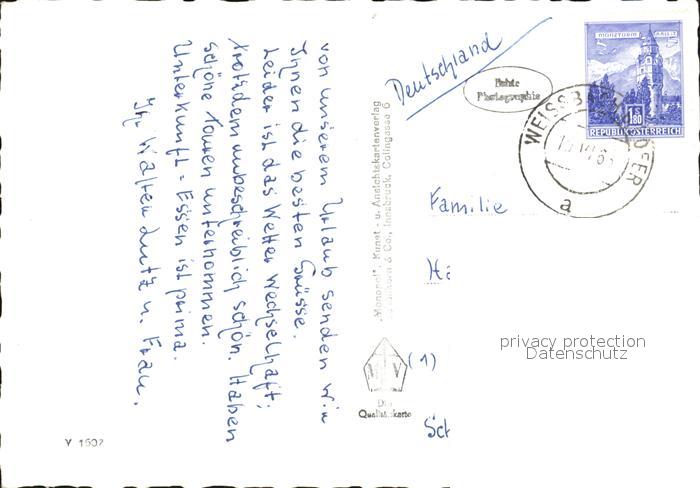 von unserem Urlaub senden wir
Ihnen die besten Grüsse.
Leider ist das Wetter wechselhaft;
trotzdem unbeschreiblich schön. Haben
schöne Touren unternommen.
Unterkunft - Essen ist prima.
Ihr Walter Lutz u. Frau.
Y 1502
"Monopol", Kunst - u. Ansichtskartenverlag
& Co., Innsbruck, Colingasse 6
MV
Die
Qualitätskarte
Deutschland
Echte
Photographie
MÜNZTURM HALL i. T.
1.80
REPUBLIK ÖSTERREICH
WEISSBACH LOFER
a
Familie
Ha
(1)
Sch
privacy protection
Datenschutz